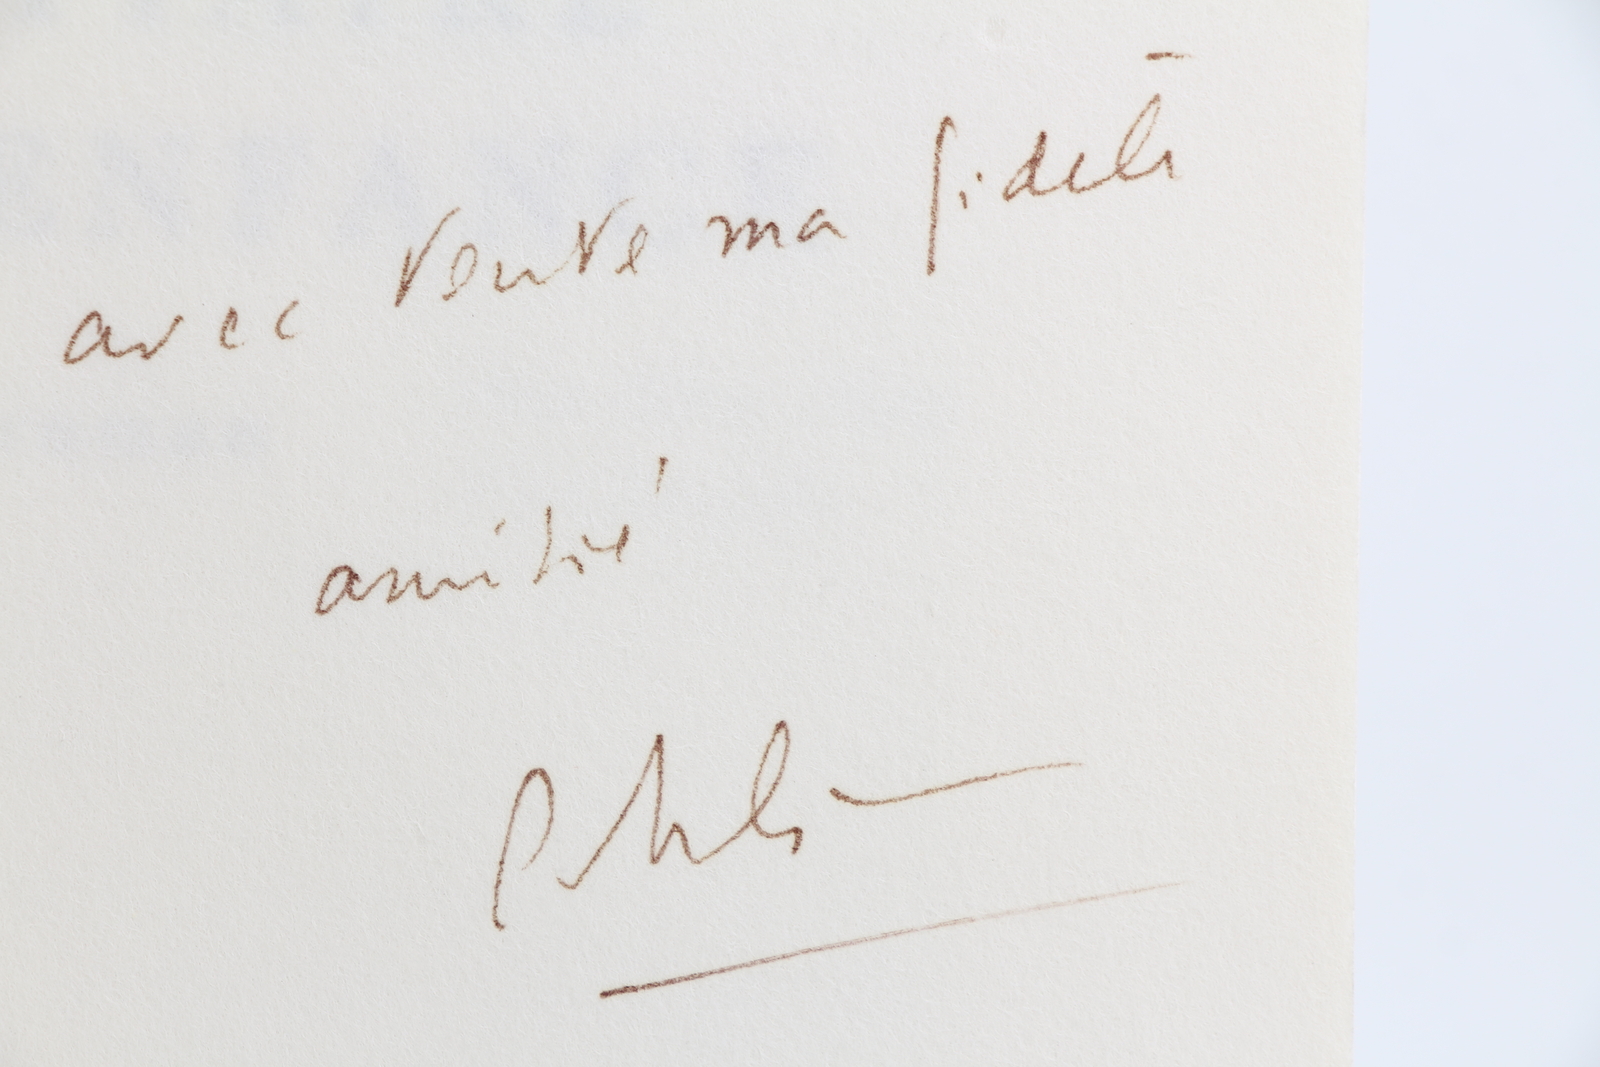 avec toute ma fidèle
amitié